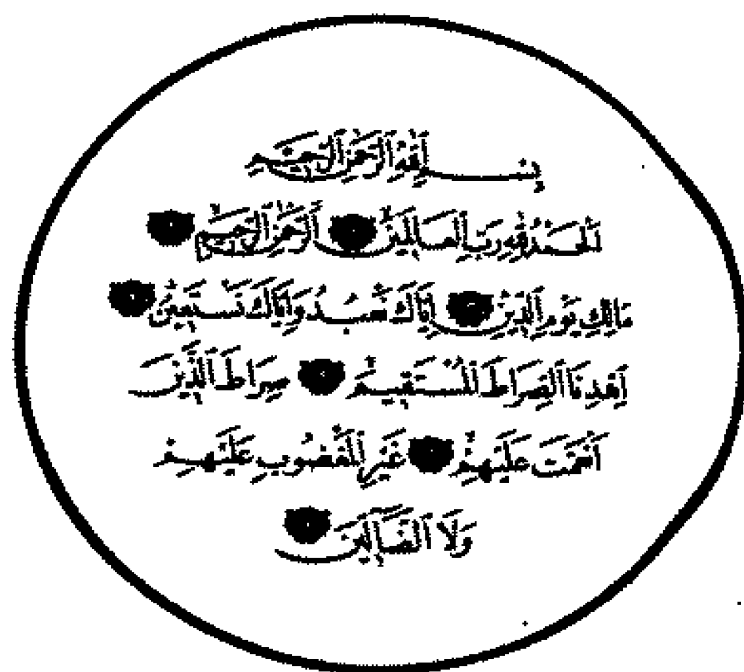 بِسْمِ اللَّهِ الرَّحْمَٰنِ الرَّحِيمِ
الْحَمْدُ لِلَّهِ رَبِّ الْعَالَمِينَ الرَّحْمَٰنِ الرَّحِيمِ
مَالِكِ يَوْمِ الدِّينِ إِيَّاكَ نَعْبُدُ وَإِيَّاكَ نَسْتَعِينُ
اهْدِنَا الصِّرَاطَ الْمُسْتَقِيمَ صِرَاطَ الَّذِينَ
أَنْعَمْتَ عَلَيْهِمْ غَيْرِ الْمَغْضُوبِ عَلَيْهِمْ
وَلَا الضَّالِّينَ